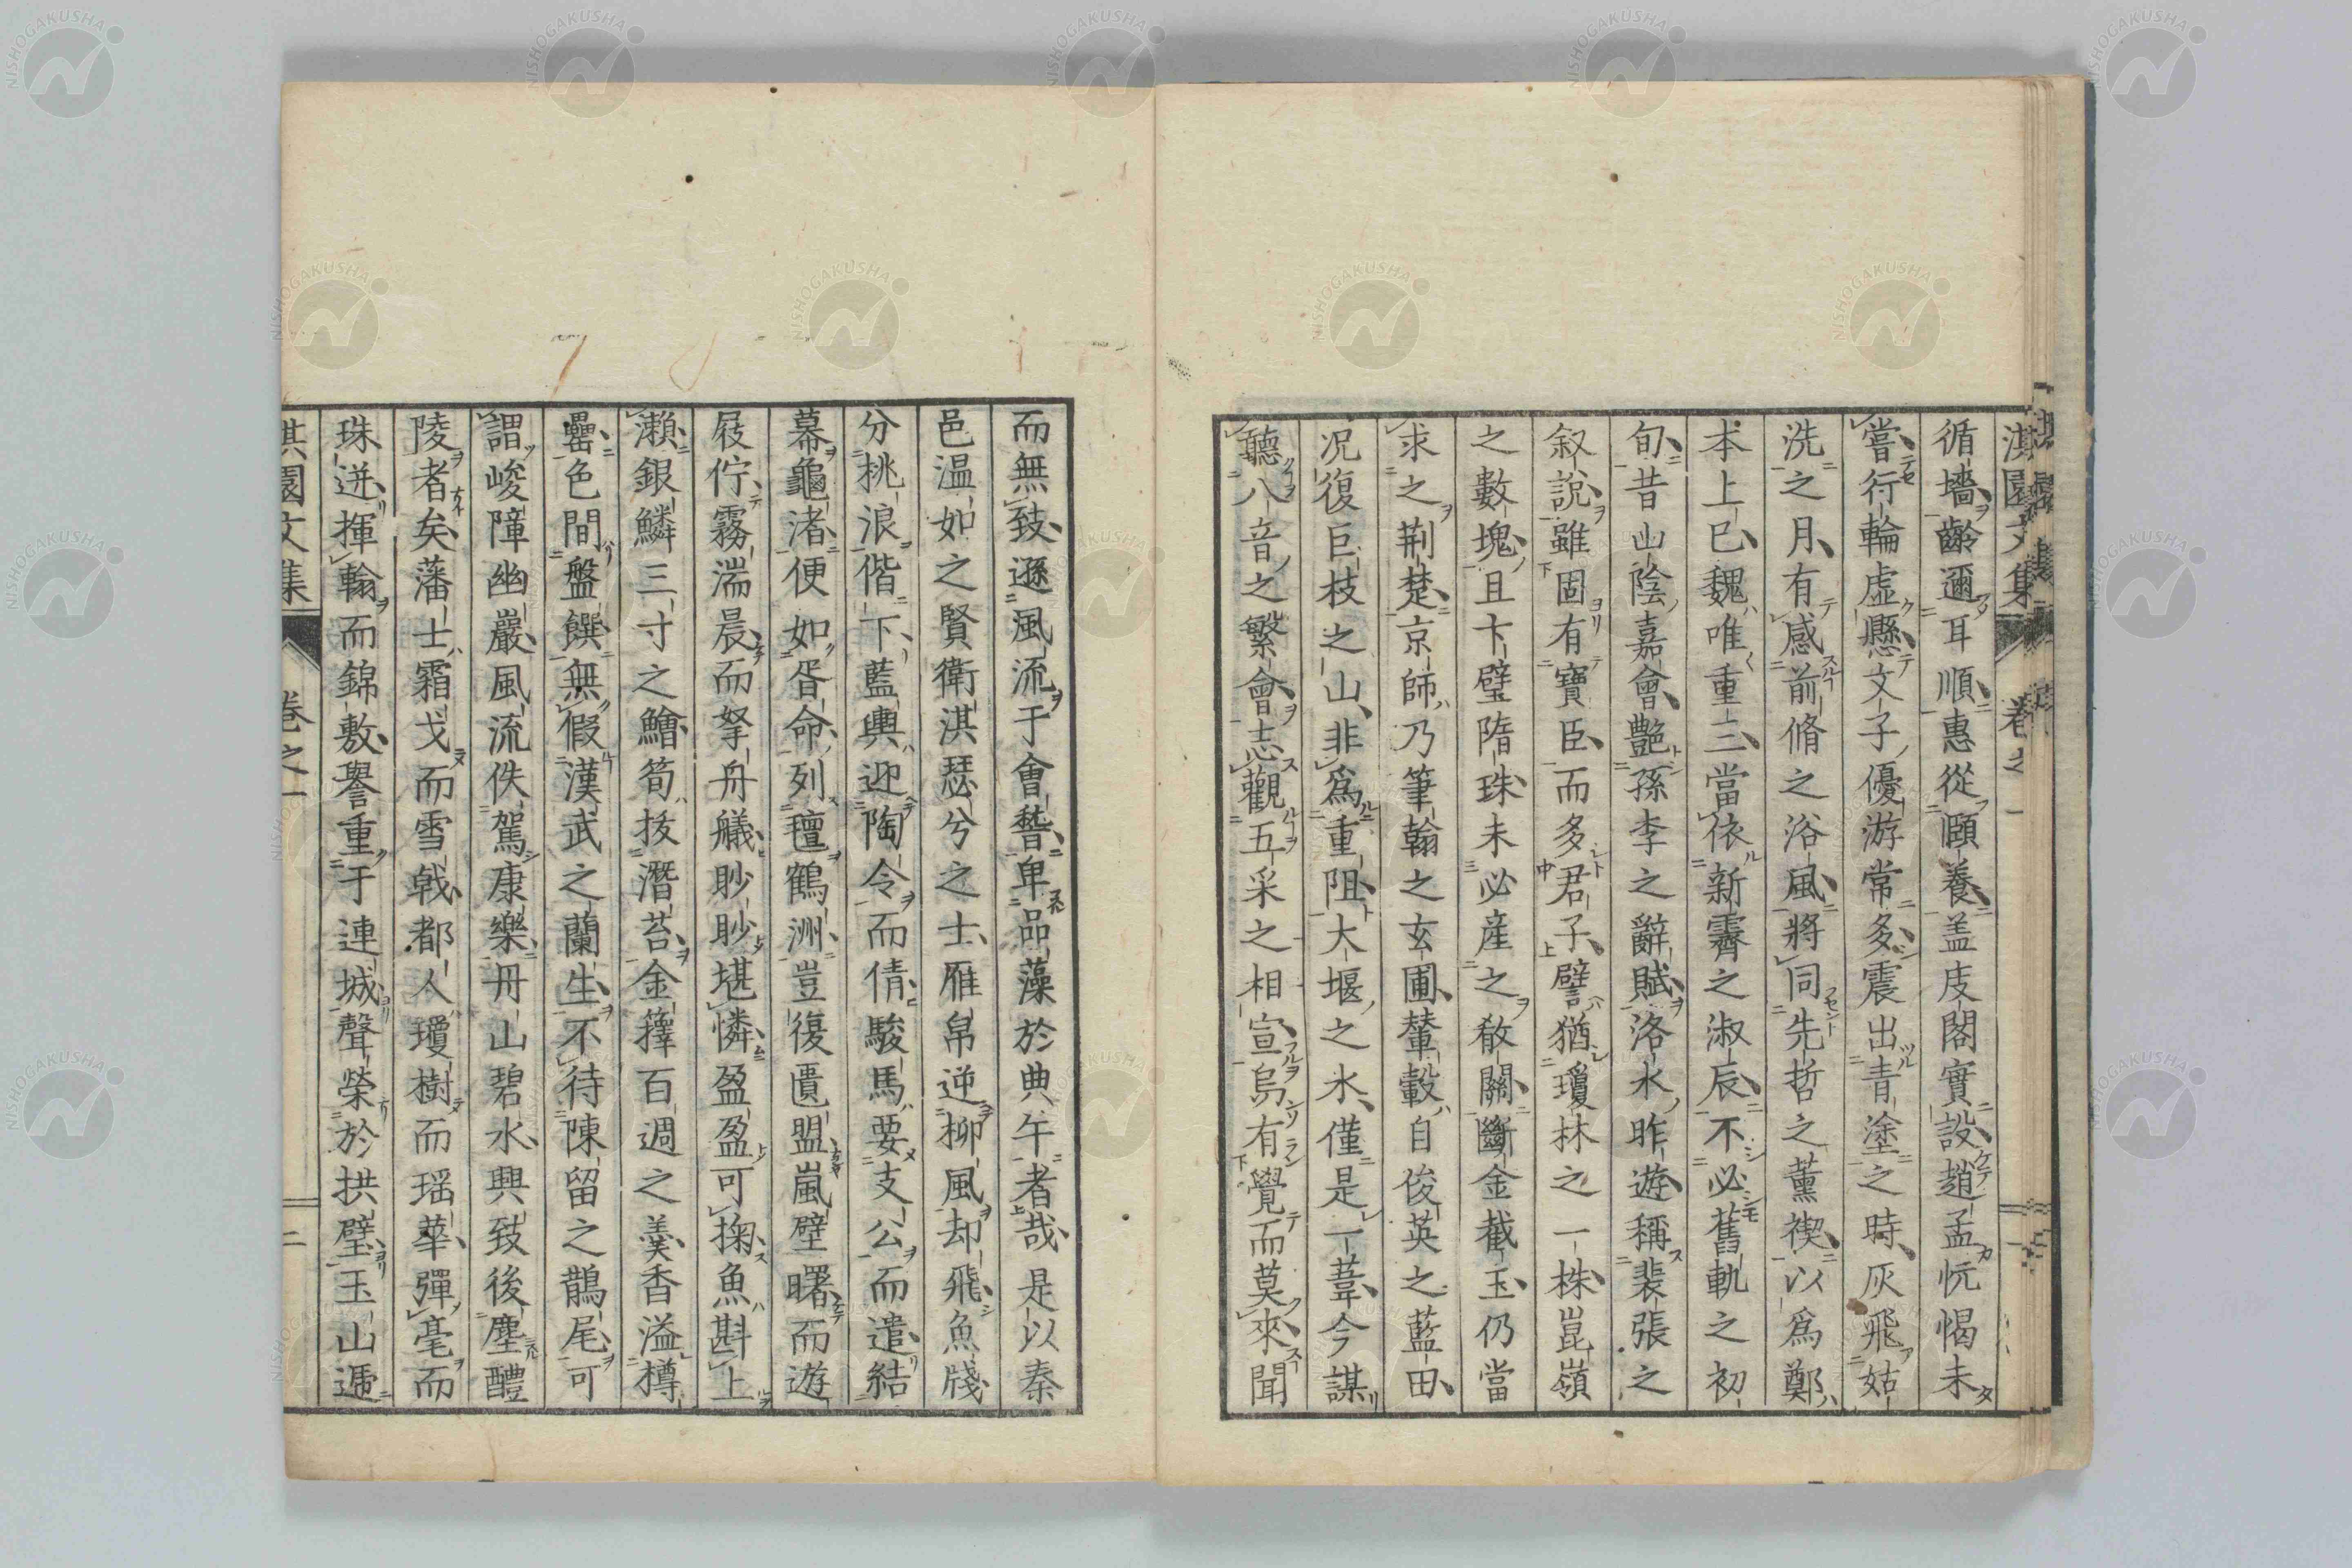 淇園文集 卷之一
循墻齡邇耳順惠從頤養盖庋閣實設趙孟忨愒未
嘗行輪虛懸文子優游常多震出青塗之時灰飛姑
洗之月有感前脩之浴風將同先哲之薫禊以爲鄭
本上巳魏唯重三當依新霽之淑辰不必舊軌之初
旬昔山陰嘉會艶孫李之辭賦洛水昨遊稱裴張之
叙說雖固有寶臣而多君子譬猶瓊林之一株崑嶺
之數塊且卞璧隋珠未必産之敘關斷金截玉仍當
求之荆楚京師乃筆翰之玄圃輦轂自俊英之藍田
况復巨枝之山非爲重阻大堰之水僅是一葦今謀
聽八音之繁會志觀五采之相宣烏有覺而莫來聞
而無致遜風流于會嵆卑品藻於典午者哉是以秦
邑温如之賢衛淇瑟兮之士雁帛逆柳風却飛魚牋
分桃浪偕下藍輿迎陶令而倩駿馬要支公而遣結
幕龜渚便如胥命列氊鶴洲豈復匱盟嵐壁曙而遊
屐佇霧湍晨而拏舟艤眇眇堪憐盈盈可掬魚斟上
瀨銀鱗三寸之鱠筍拔潛苔金籜百週之羹香溢樽
罍色間盤饌無假漢武之蘭生不待陳留之鵲尾可
謂峻障幽巖風流佚駕康樂丹山碧水興致後塵醴
陵者矣藩士霜戈而雪戟都人瓊樹而瑶華彈毫而
珠迸揮翰而錦敷譽重于連城聲榮於拱璧玉山遞
淇園文集 卷之一 二